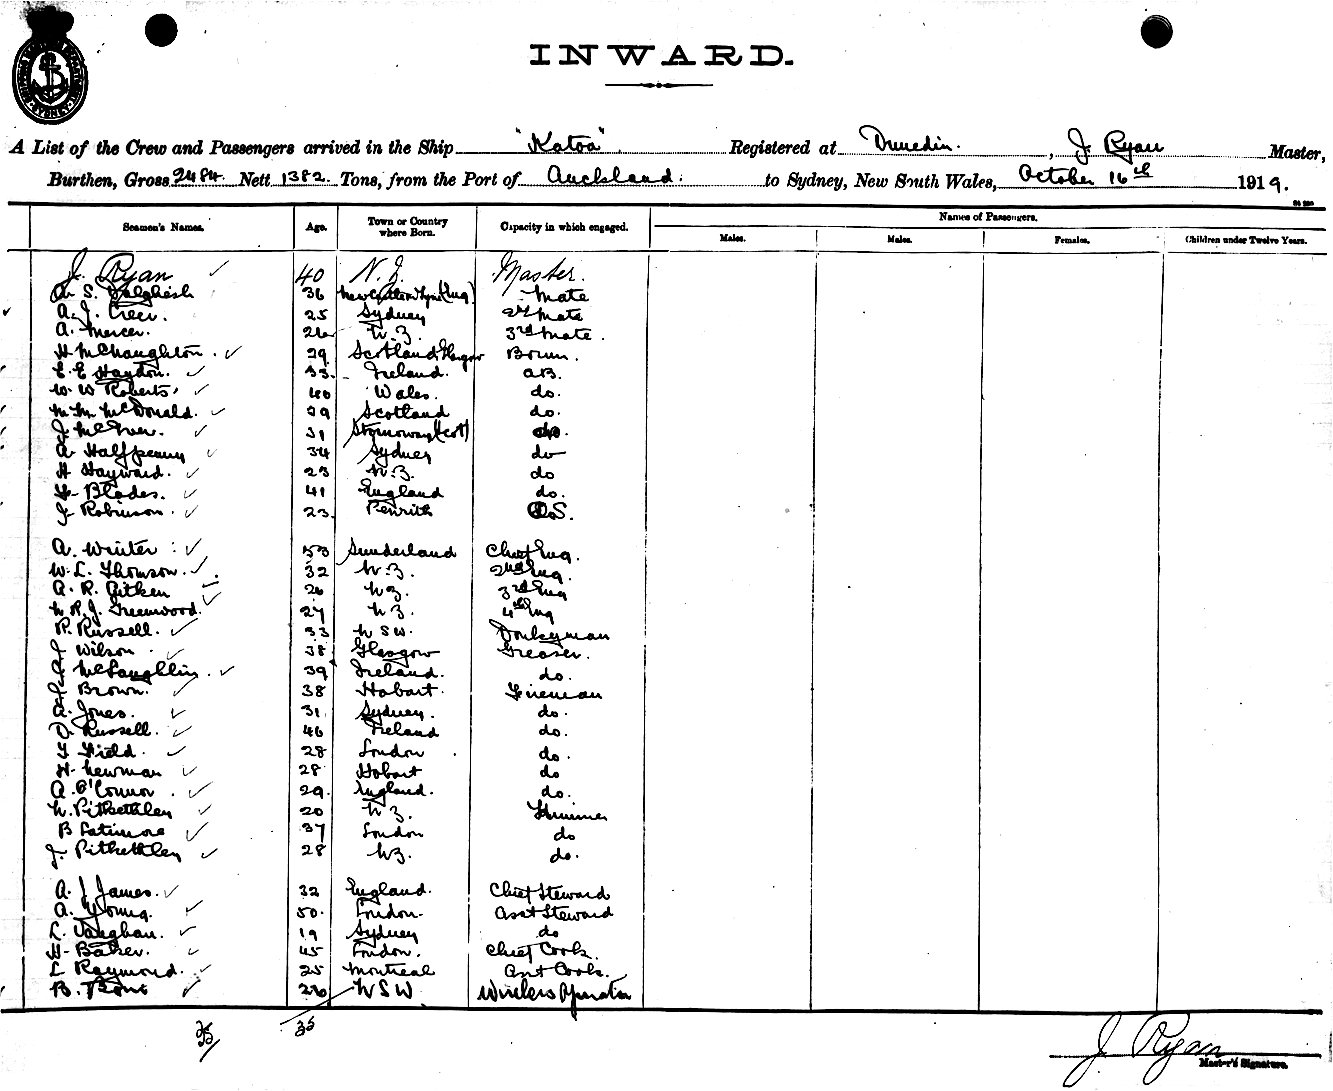 INWARD.
A List of the Crew and Passengers arrived in the Ship "Katoa". Registered at Dunedin. , J. Ryan Master,
Burthen, Gross 2484. Nett 1382. Tons, from the Port of Auckland. to Sydney, New South Wales, October 16th 1919.
Names of Passengers.
Seamen's Names. Age. Town or Country where Born. Capacity in which engaged. Males. Males. Females. Children under Twelve Years.
J. Ryan 40 N.Z. Master.
A. S. Dalgliesh 36 Newcastle on Tyne (Eng) Mate
A. J. Creer. 25 Sydney 2nd Mate
A. Mercer. 26 N.Z. 3rd Mate.
H McNaughton. 29 Scotland Glasgow Bosun.
E. E Haydon. 33. Ireland. AB.
W. W Roberts. 40 Wales. do.
M. Mc McDonald. 29 Scotland do.
J. McIver. 31 Stornoway (Scot) do.
A Halfpenny 34 Sydney do
H Hayward. 23 N.Z. do
Blades. 41 England do.
J. Robinson. 23. Penrith O.S.
A. Winter 53 Sunderland Chief Eng.
W. L. Thomson. 32 N.Z. 2nd Eng.
A. R. Aitken 26 NZ. 3rd Eng
N. R. J. Greenwood. 27 N Z. 4th Eng
R. Russell. 33 N SW. Donkeyman
J Wilson 38 Glasgow Greaser.
J McLaughlin. 39 Ireland. do.
J. Brown. 38 Hobart. Fireman
A. Jones. 31. Sydney. do.
D. Russell. 46 Ireland do.
T Field. 28 London do.
H. Newman 28 Hobart do
A. O'Connor. 29. England. do.
N. Pitkethley 20 N Z. Trimmer
B Latimore 37 London do
J. Pitkethley 28 NZ. do.
A. J James. 32 England. Chief Steward
A. Young. 50. London. Asst Steward
L. Vaughan. 19 Sydney do
H. Baker. 45 London. Chief Cook.
L Raymond. 25 Montreal Asst Cook.
B. 26 N S W Wireless Operator
35 35
J. Ryan
Master's Signature.